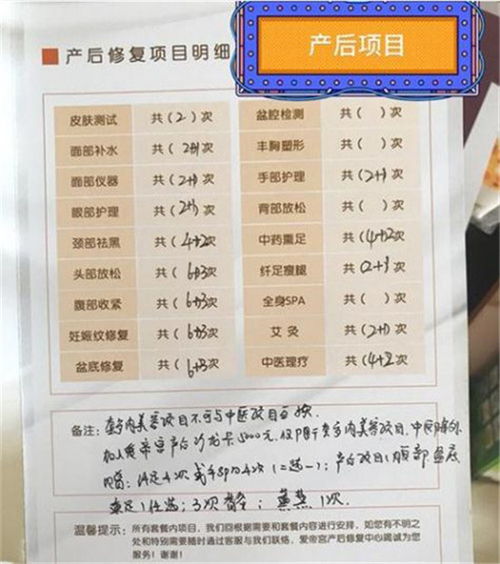 产后项目
产后修复项目明细
皮肤测试 共（2）次 盆腔检测 共（ ）次
面部补水 共（2+1）次 丰胸塑形 共（ ）次
面部仪器 共（2+1）次 手部护理 共（2+1）次
眼部护理 共（2+1）次 背部放松 共（ ）次
颈部祛黑 共（4+2次 中药熏足 共（4+2次
头部放松 共（6+3次 纤足瘦腿 共（2+1次
腹部收紧 共（6+3次 全身SPA 共（ ）次
妊娠纹修复 共（6+3次 艾灸 共（2+1）次
盆底修复 共（6+3次 中医理疗 共（4+2次
备注： 肉美容项目不可与中医项目互换.
加入爱帝宫产后 卡5000元,仅限于 肉美容项目,中医
4次 4次（二选一）；产后项目 腹部盆底
1任选；3次 ； 1次.
温馨提示：所有套餐内项目，我们回根据需要和套餐内容进行安排，如您有不明之
处和特别需要随时通过客服与我们联络，爱帝宫产后修复中心竭诚为您
服务！谢谢！